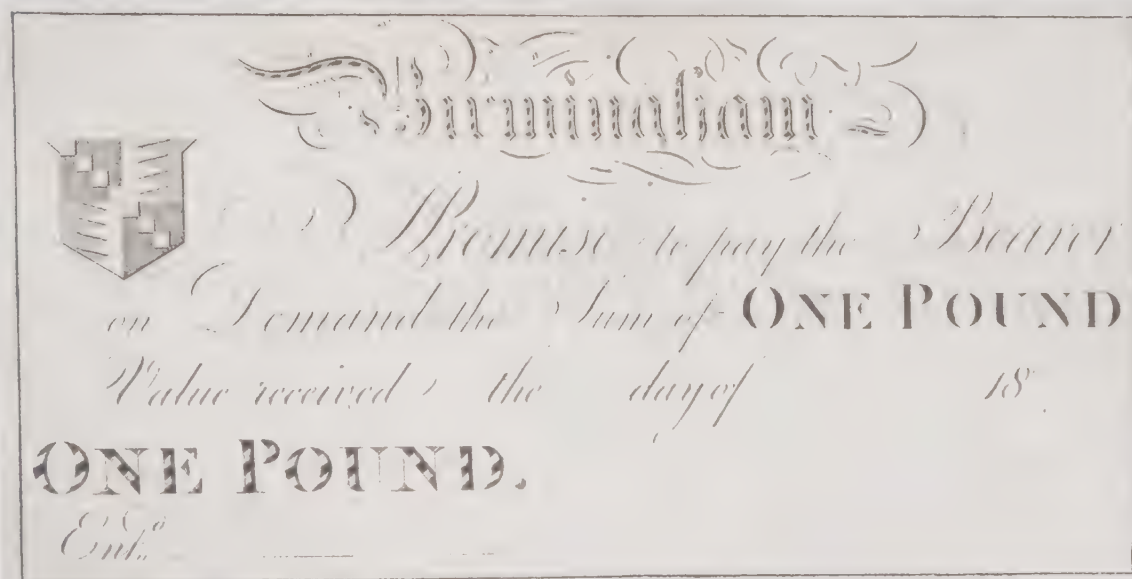 Birmingham
I Promise to pay the Bearer
on Demand the Sum of ONE POUND
Value received the day of 18
ONE POUND.
Entd.